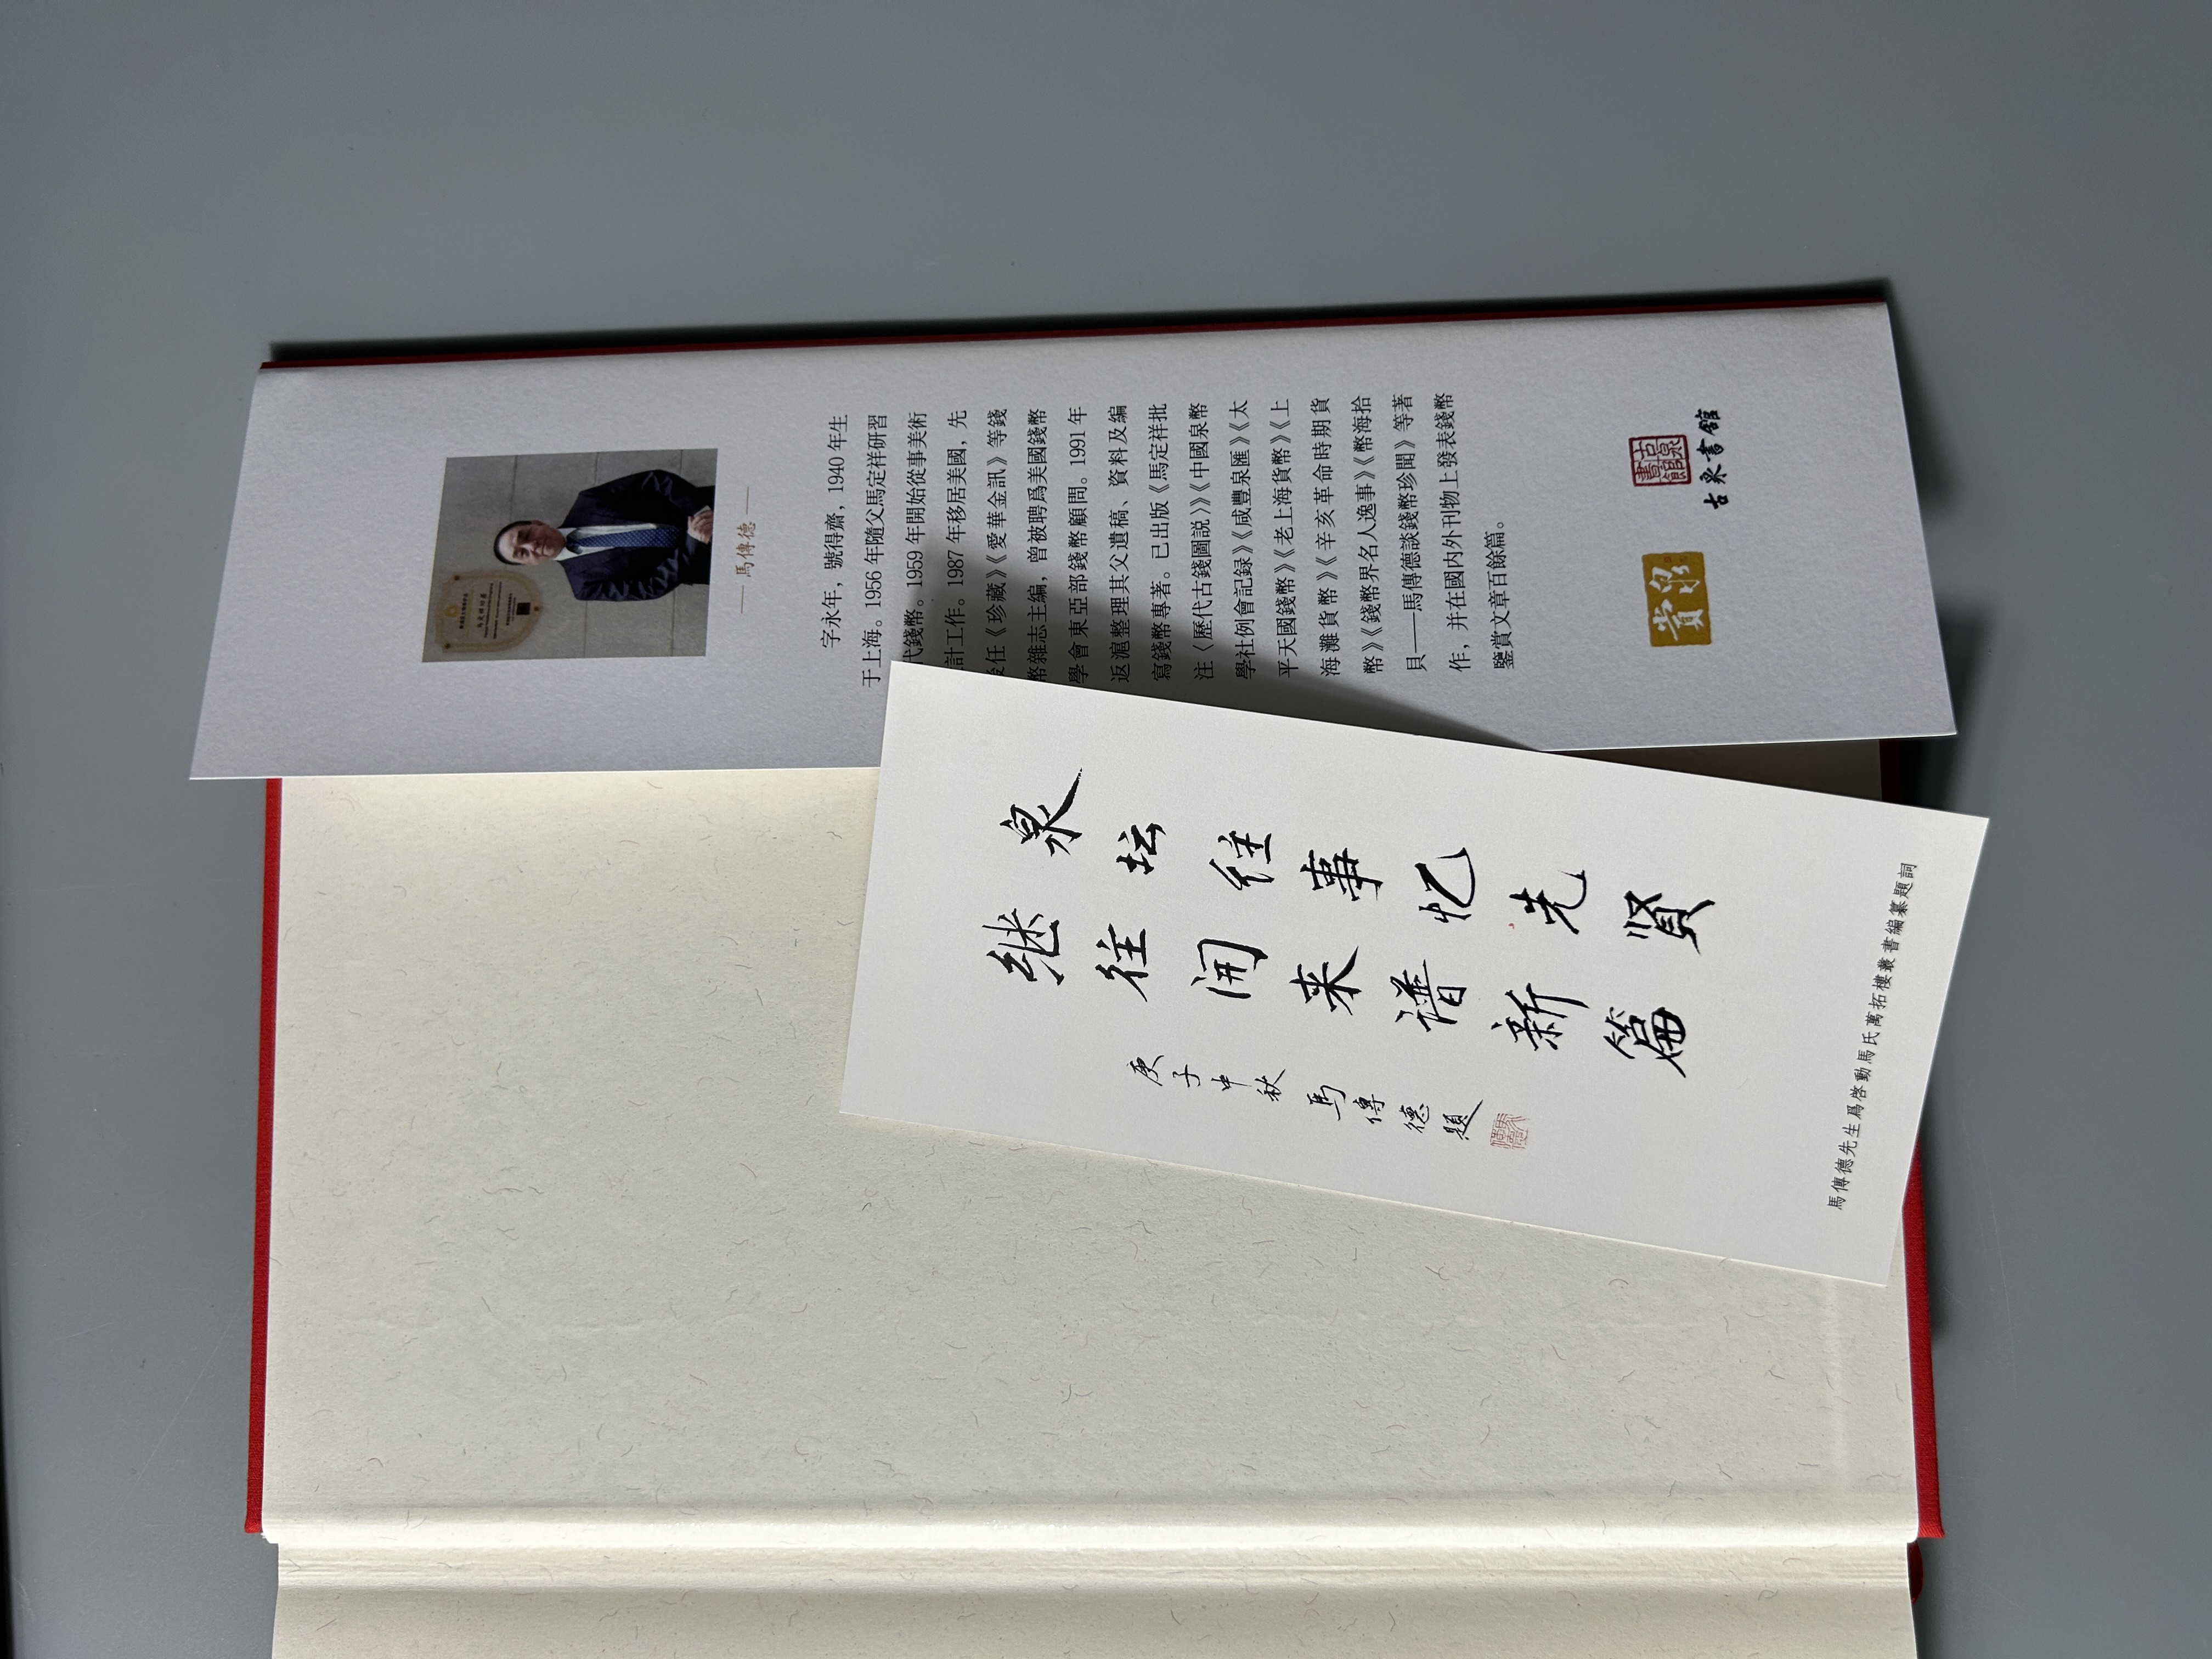 馬傳德
字永年，號得齋，1940年生
于上海。1956年隨父馬定祥研習
代錢幣。1959年開始從事美術
計工作。1987年移居美國，先
任《珍藏》《愛華金訊》等錢
幣雜志主編，曾被聘爲美國錢幣
學會東亞部錢幣顧問。1991年
返滬整理其父遺稿、資料及編
寫錢幣專著。已出版《馬定祥批
注〈歷代古錢圖説〉》《中國泉幣
學社例會記録》《咸豐泉匯》《太
平天國錢幣》《老上海貨幣》《上
海灘貨幣》《辛亥革命時期貨
幣》《錢幣界名人逸事》《幣海拾
貝——馬傳德談錢幣珍聞》等著
作，并在國内外刊物上發表錢幣
鑒賞文章百餘篇。
賞泉
古泉書館
古泉書館
泉坛往事忆先賢
继往開来谱新篇
庚子中秋 馬傳德題
馬傳德先生爲啓動馬氏萬拓樓叢書編纂題詞